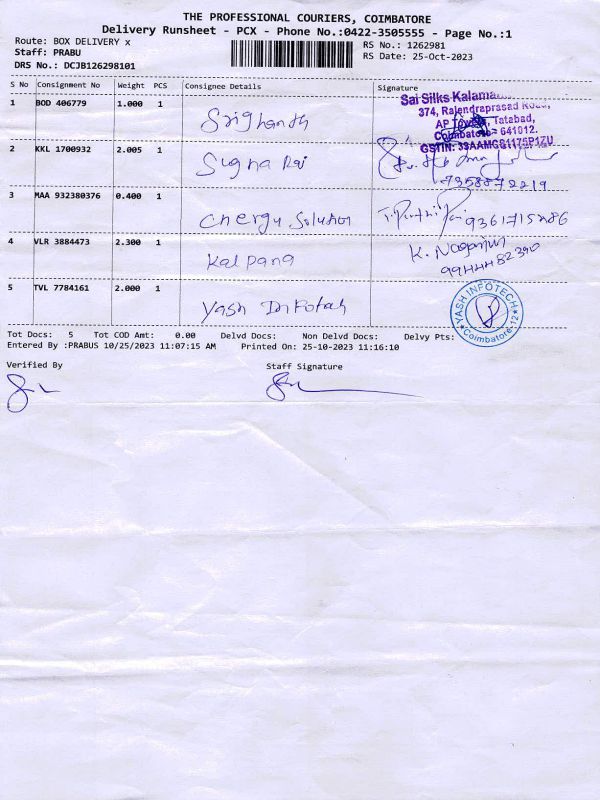 THE PROFESSIONAL COURIERS, COIMBATORE
Delivery Runsheet - PCX - Phone No.:0422-3505555 - Page No.:1
Route: BOX DELIVERY x
RS No.: 1262981
Staff: PRABU
RS Date: 25-Oct-2023
DRS No.: DCJB126298101
S No Consignment No Weight PCS Consignee Details Signature
1 BOD 406779 1.000 1 Srighanth
Sai Silks Kalama
374, Rajendraprasad Road,
Tatabad,
Coimbatore - 641012.
GSTIN: 33AAMCS1175P1ZU
2 KKL 1700932 2.005 1 Sugna Raj
7358872219
3 MAA 932380376 0.400 1 Energy Solution
4 VLR 3884473 2.300 1 Kalpana
K. Nagarjun
5 TVL 7784161 2.000 1 Yash
YASH INFOTECH
Coimbatore-12
Tot Docs: 5 Tot COD Amt: 0.00 Delvd Docs: Non Delvd Docs: Delvy Pts:
Entered By :PRABUS 10/25/2023 11:07:15 AM Printed On: 25-10-2023 11:16:10
Verified By Staff Signature